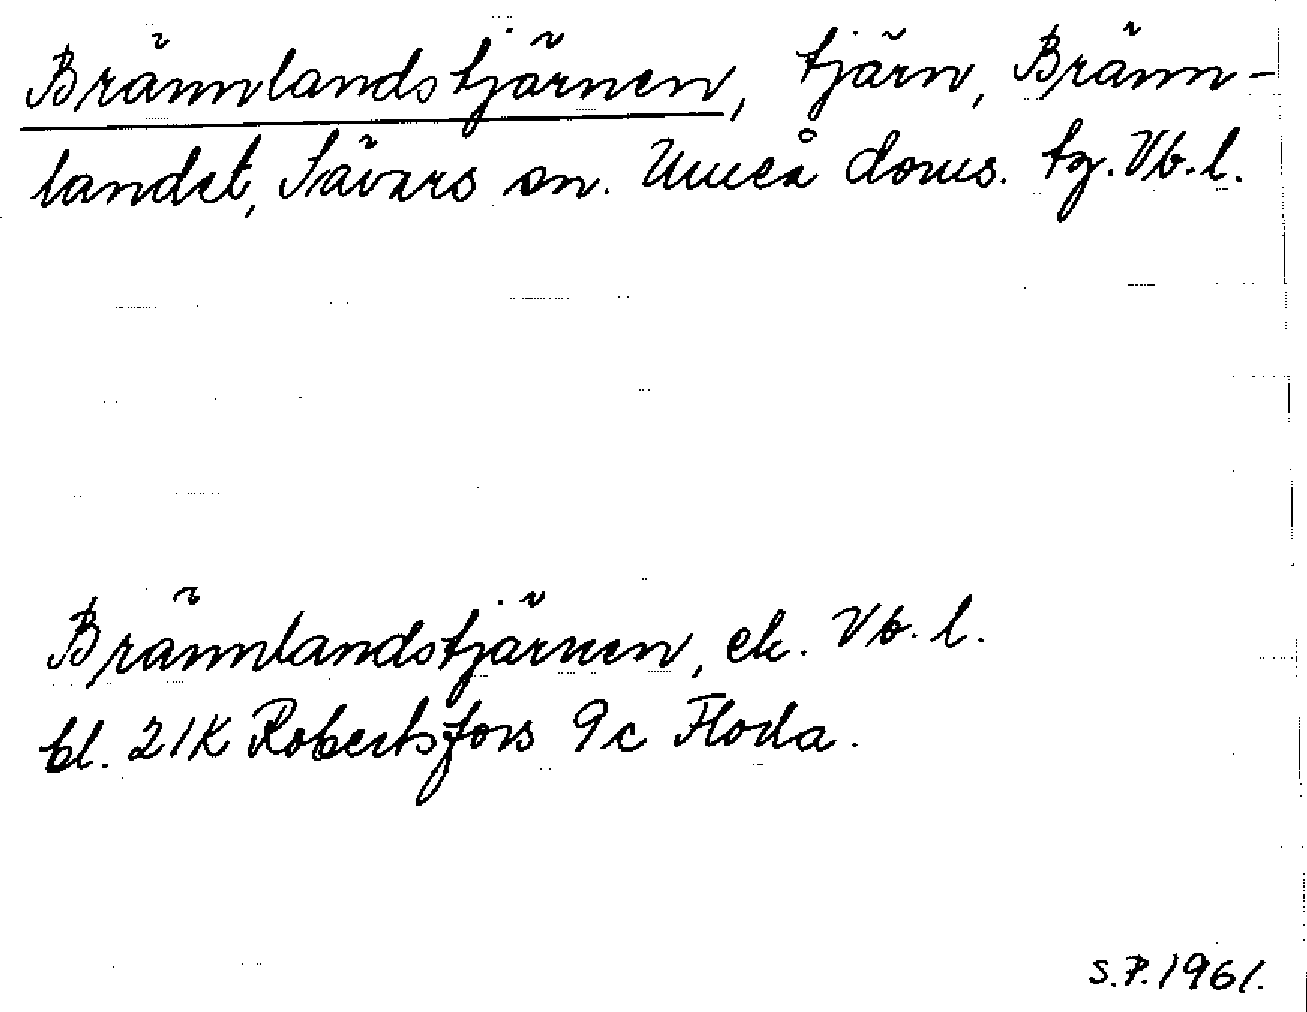 Brännlandstjärnen, tjärn, Bränn-
landet, Sävars sn. Umeå doms. tg. Vb. l.
Brännlandstjärnen, ek. Vb. l.
bl. 21K Robertsfors 9c Floda.
S.P. 1961.